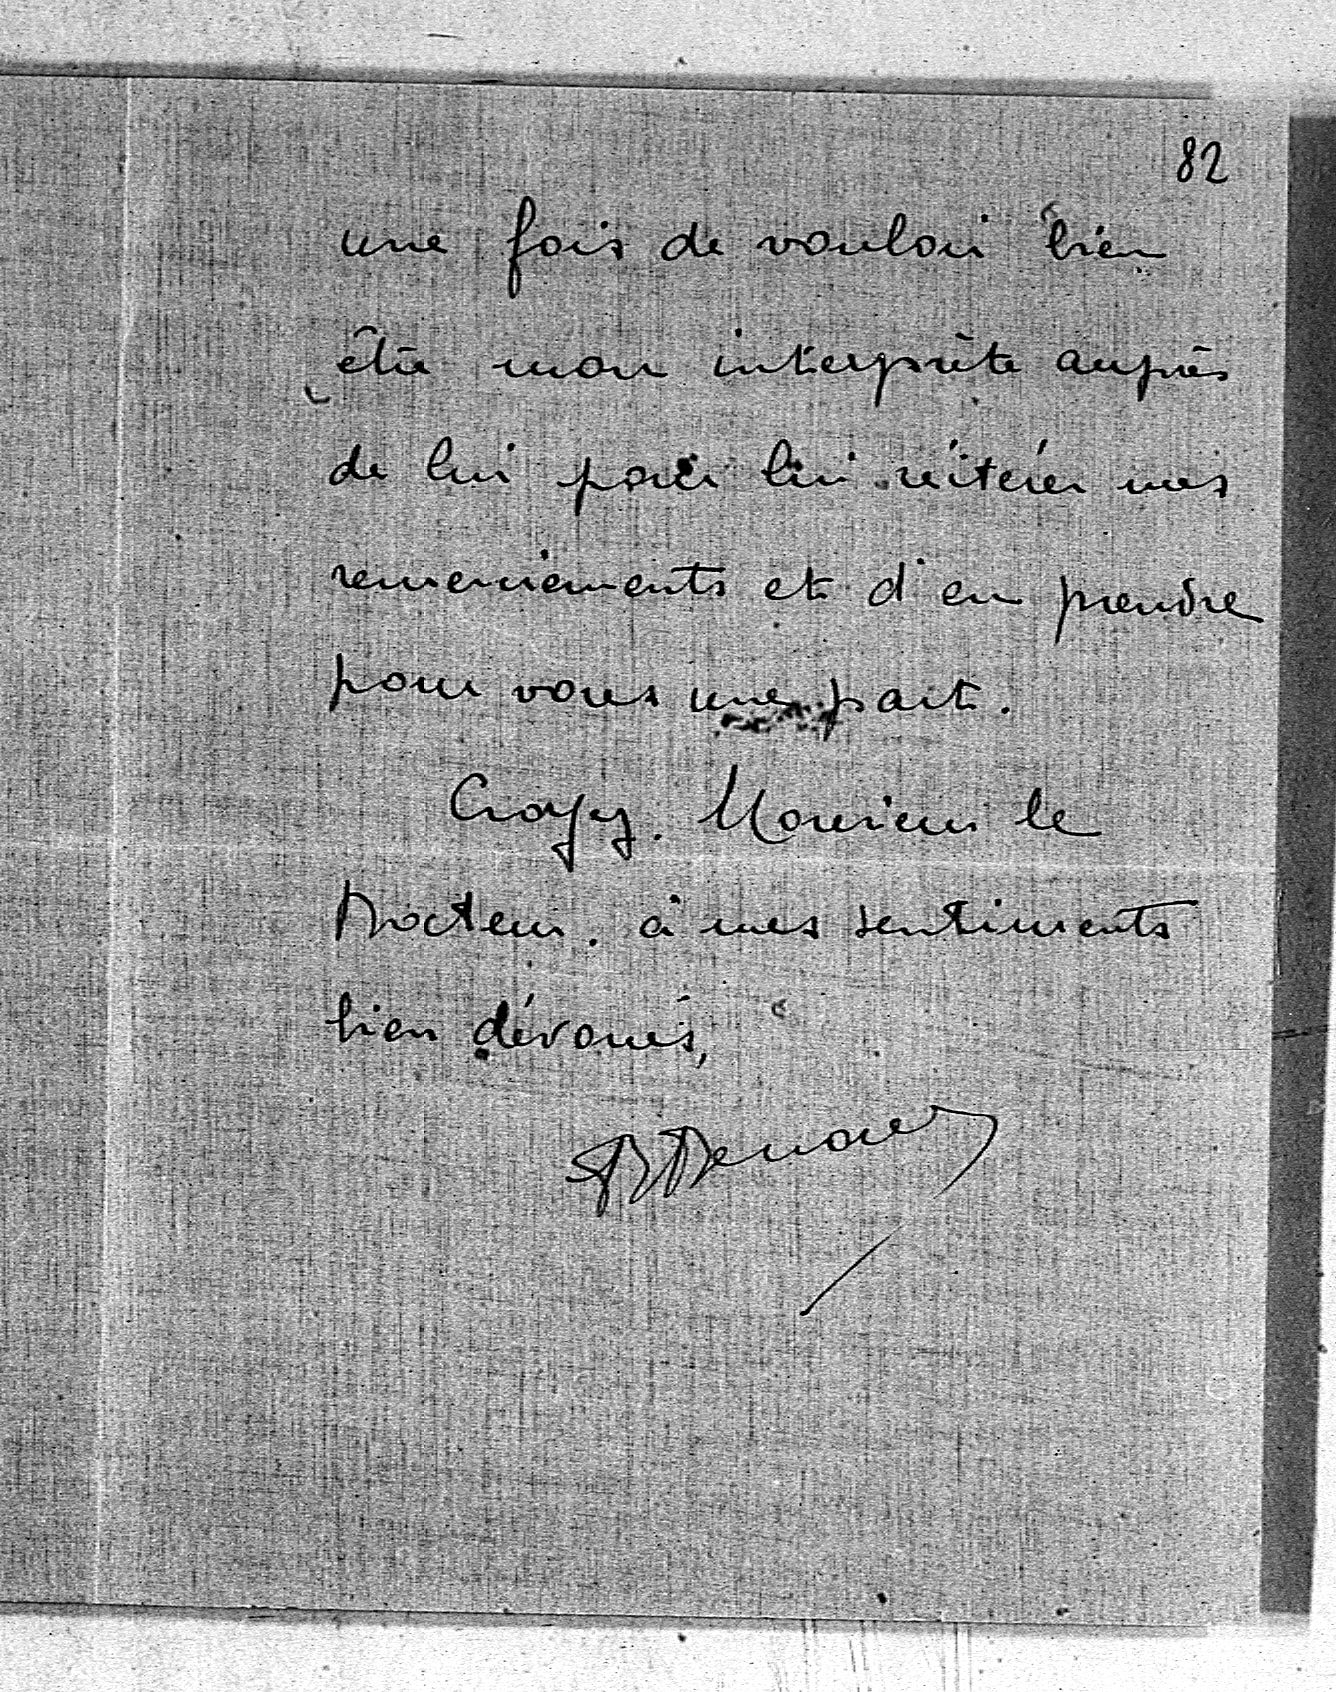 82
une fois de vouloir bien
être mon interprète auprès
de lui pour lui réitérer mes
remerciements et d'en prendre
pour vous une part.
Croyez. Monsieur le
Docteur. à mes sentiments
bien dévoués,